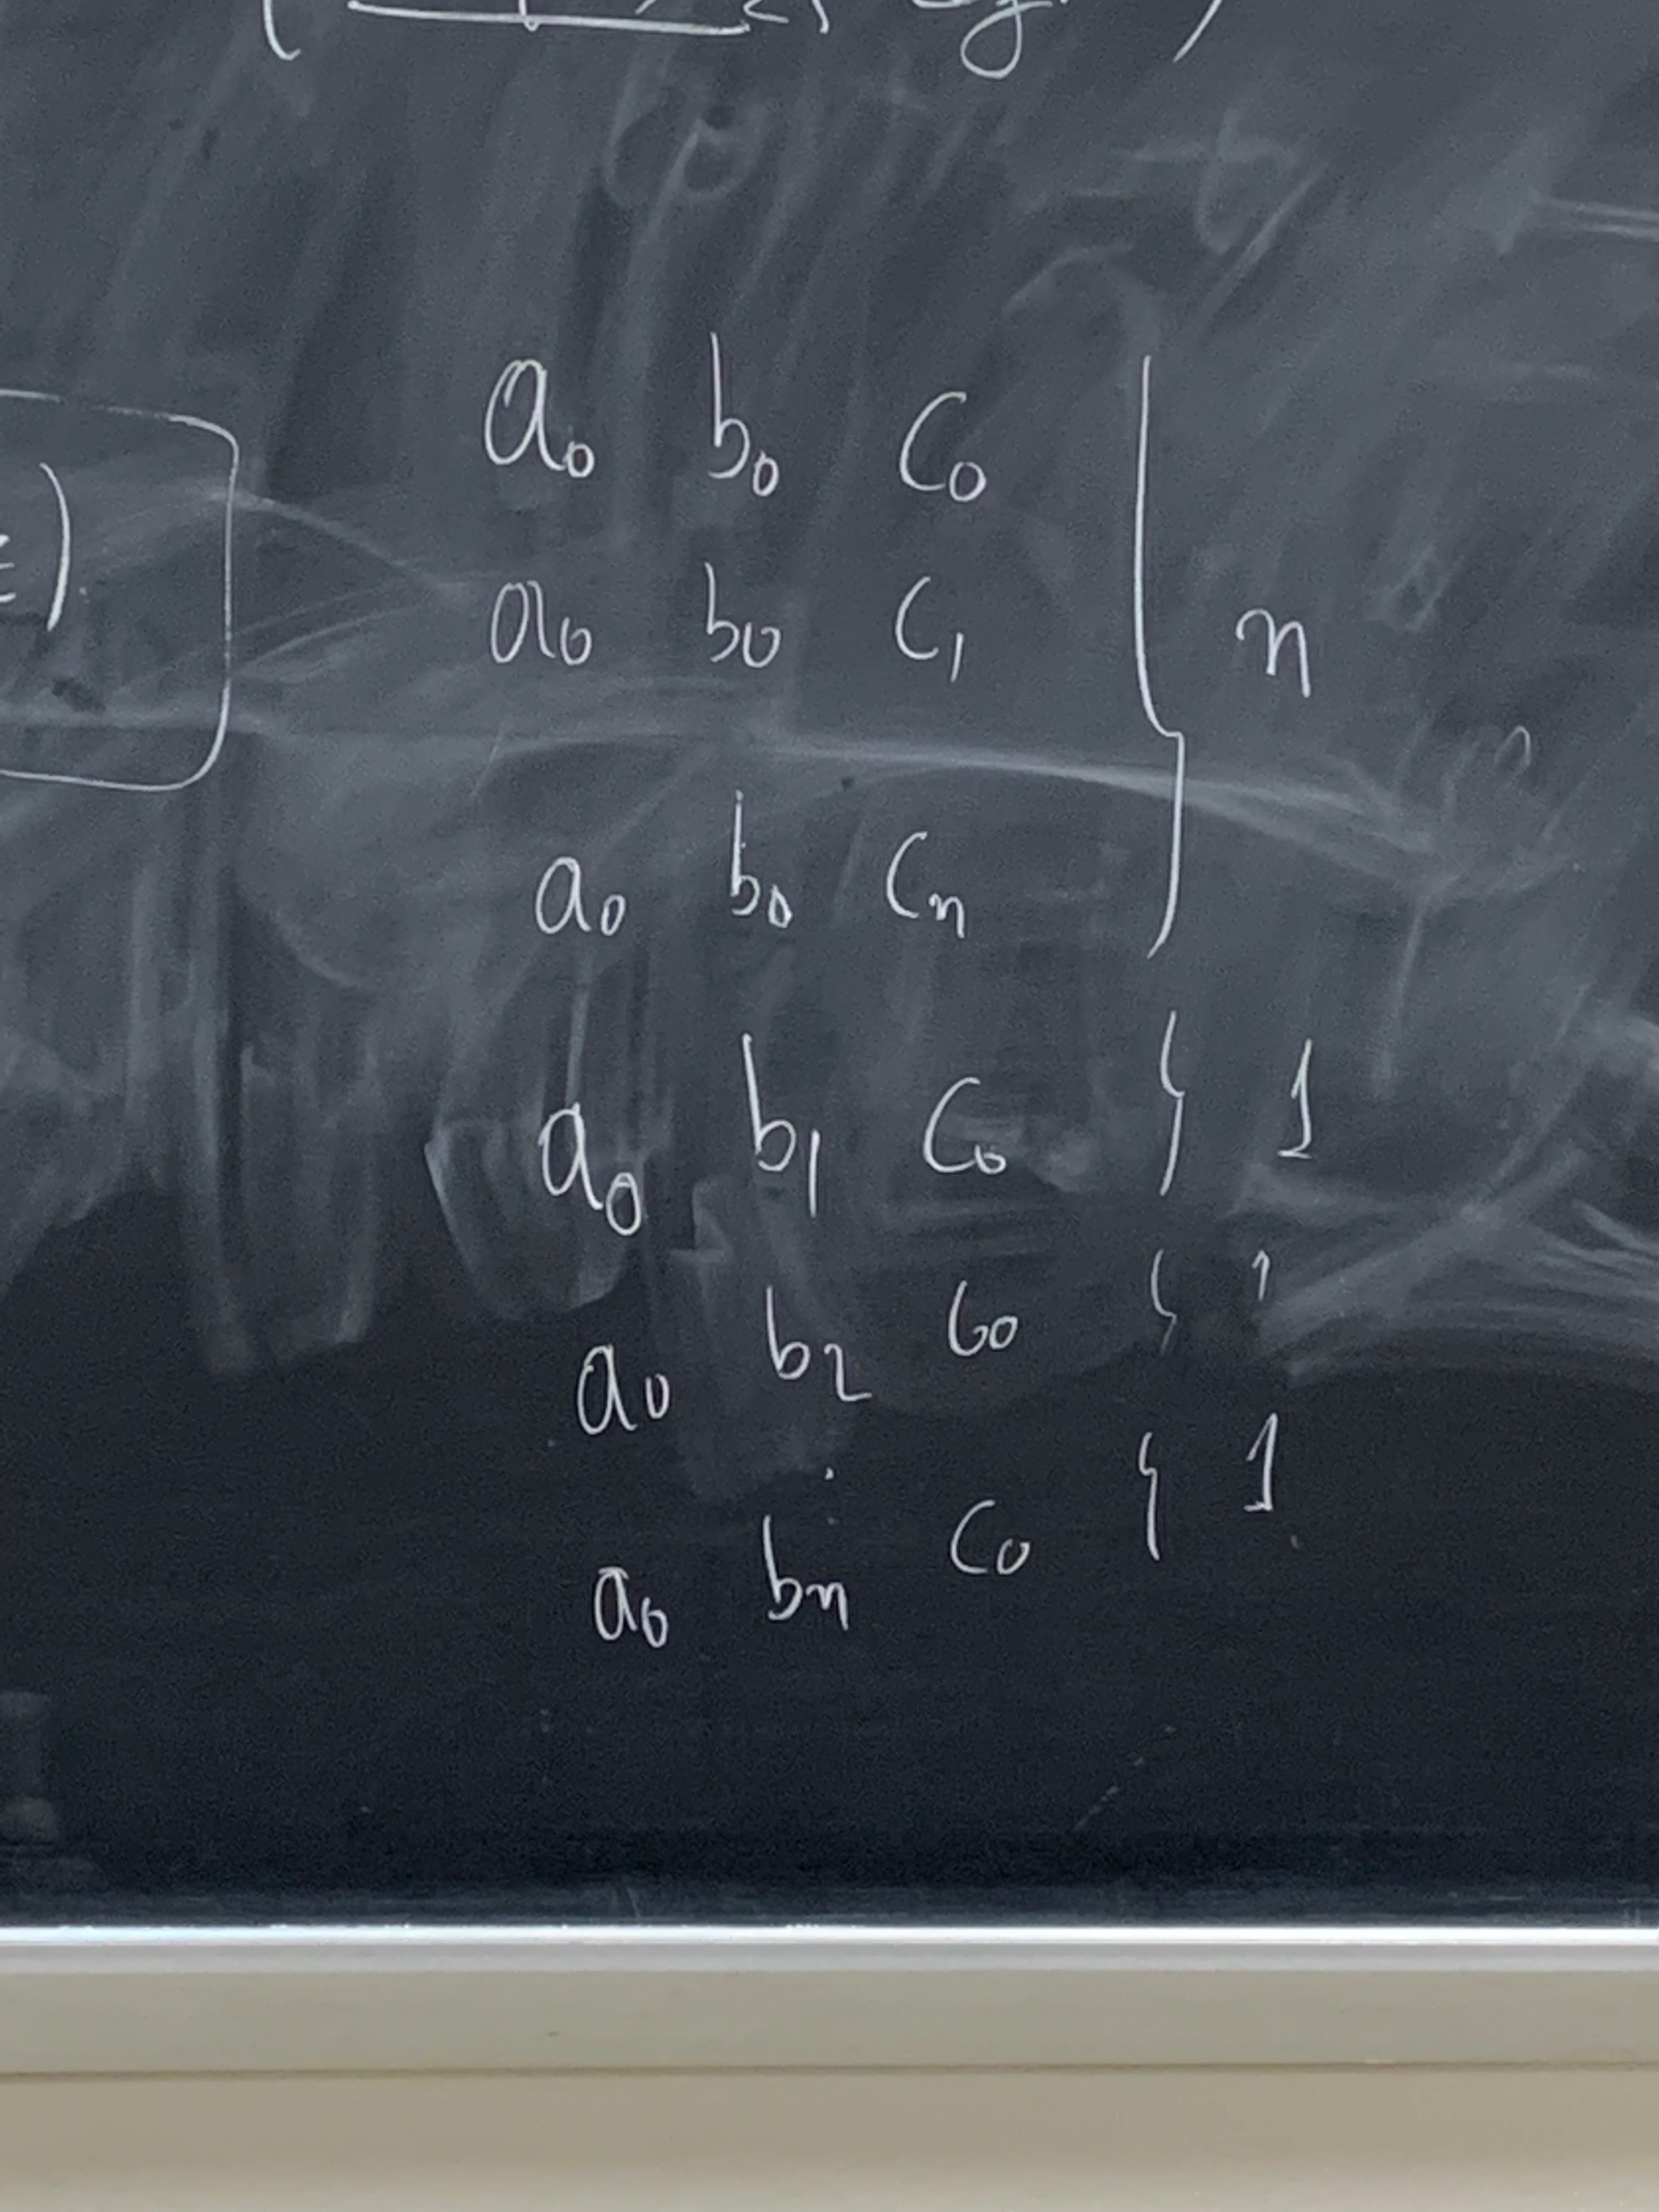 a₀ b₀ c₀
a₀ b₀ c₁
n
a₀ b₀ cₙ
a₀ b₁ c₀ } 1
a₀ b₂ c₀ } 1
a₀ bₙ c₀ } 1